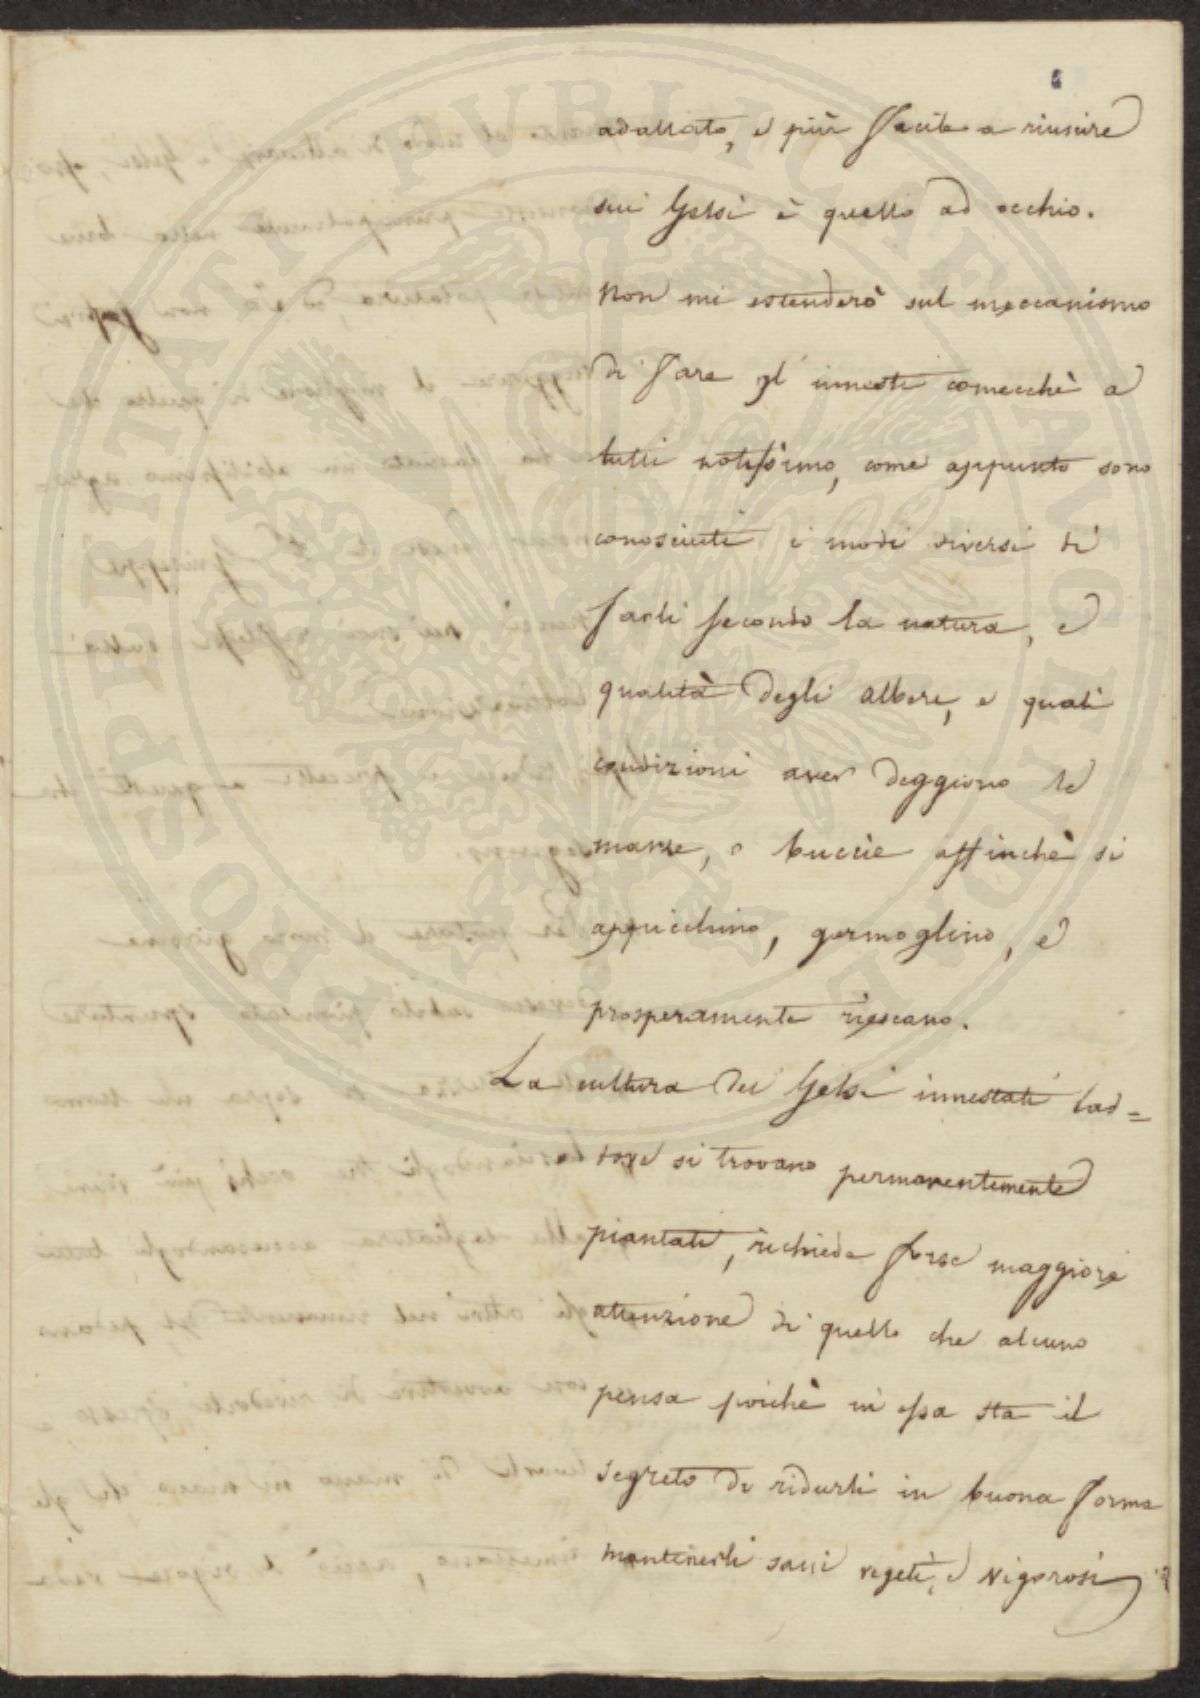 adattato, e più facile a riuscire
sui Gelsi è quello ad occhio.
Non mi estenderò sul meccanismo
di fare gl' innesti comecchè a
tutti notissimo, come appunto sono
conosciuti i modi diversi di
farli secondo la natura, e
qualità degli alberi, e quali
condizioni aver deggiono le
marze, o buccie affinchè si
appicchino, germoglino, e
prosperamente riescano.
La cultura dei Gelsi innestati lad=
dove si trovano permanentemente
piantati, richiede forse maggiore
attenzione di quello che alcuno
pensa poichè in essa sta il
segreto di ridurli in buona forma
mantenerli sani vegeti, e vigorosi
PROSPERITATI PVBLICAE AVGENDAE